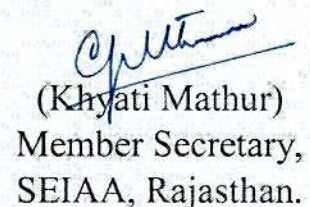 (Khyati Mathur)
Member Secretary,
SEIAA, Rajasthan.